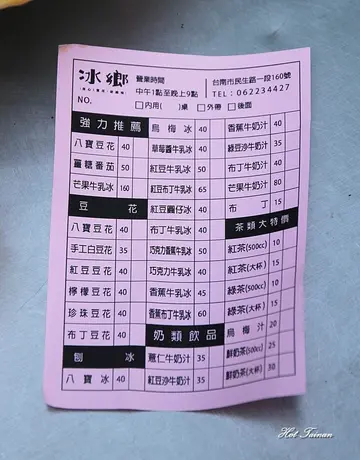 冰鄉
營業時間
中午1點至晚上9點
台南市民生路一段160號
TEL：062234427
NO.
□內用( )桌 □外帶 □後面
強力推薦
八寶豆花 40
薑糖番茄 50
芒果牛乳冰 160
豆花
八寶豆花 40
手工白豆花 35
紅豆豆花 40
檸檬豆花 40
珍珠豆花 40
布丁豆花 40
刨冰
八寶冰 40
烏梅冰 40
草莓醬牛乳冰 40
紅豆牛乳冰 50
紅豆布丁牛乳冰 65
紅豆圓仔冰 40
布丁牛乳冰 40
巧克力香蕉牛乳冰 50
巧克力牛乳冰 40
香蕉牛乳冰 45
香蕉布丁牛乳冰 60
奶類飲品
薏仁牛奶汁 35
紅豆沙牛奶汁 35
香蕉牛奶汁 40
綠豆沙牛奶汁 35
布丁牛奶汁 40
芒果牛奶汁 80
布丁 15
茶類大特價
紅茶(500cc) 10
紅茶(大杯) 15
綠茶(500cc) 10
綠茶(大杯) 15
烏梅汁 20
鮮奶茶(500cc) 25
鮮奶茶(大杯) 30
Hot Tainan